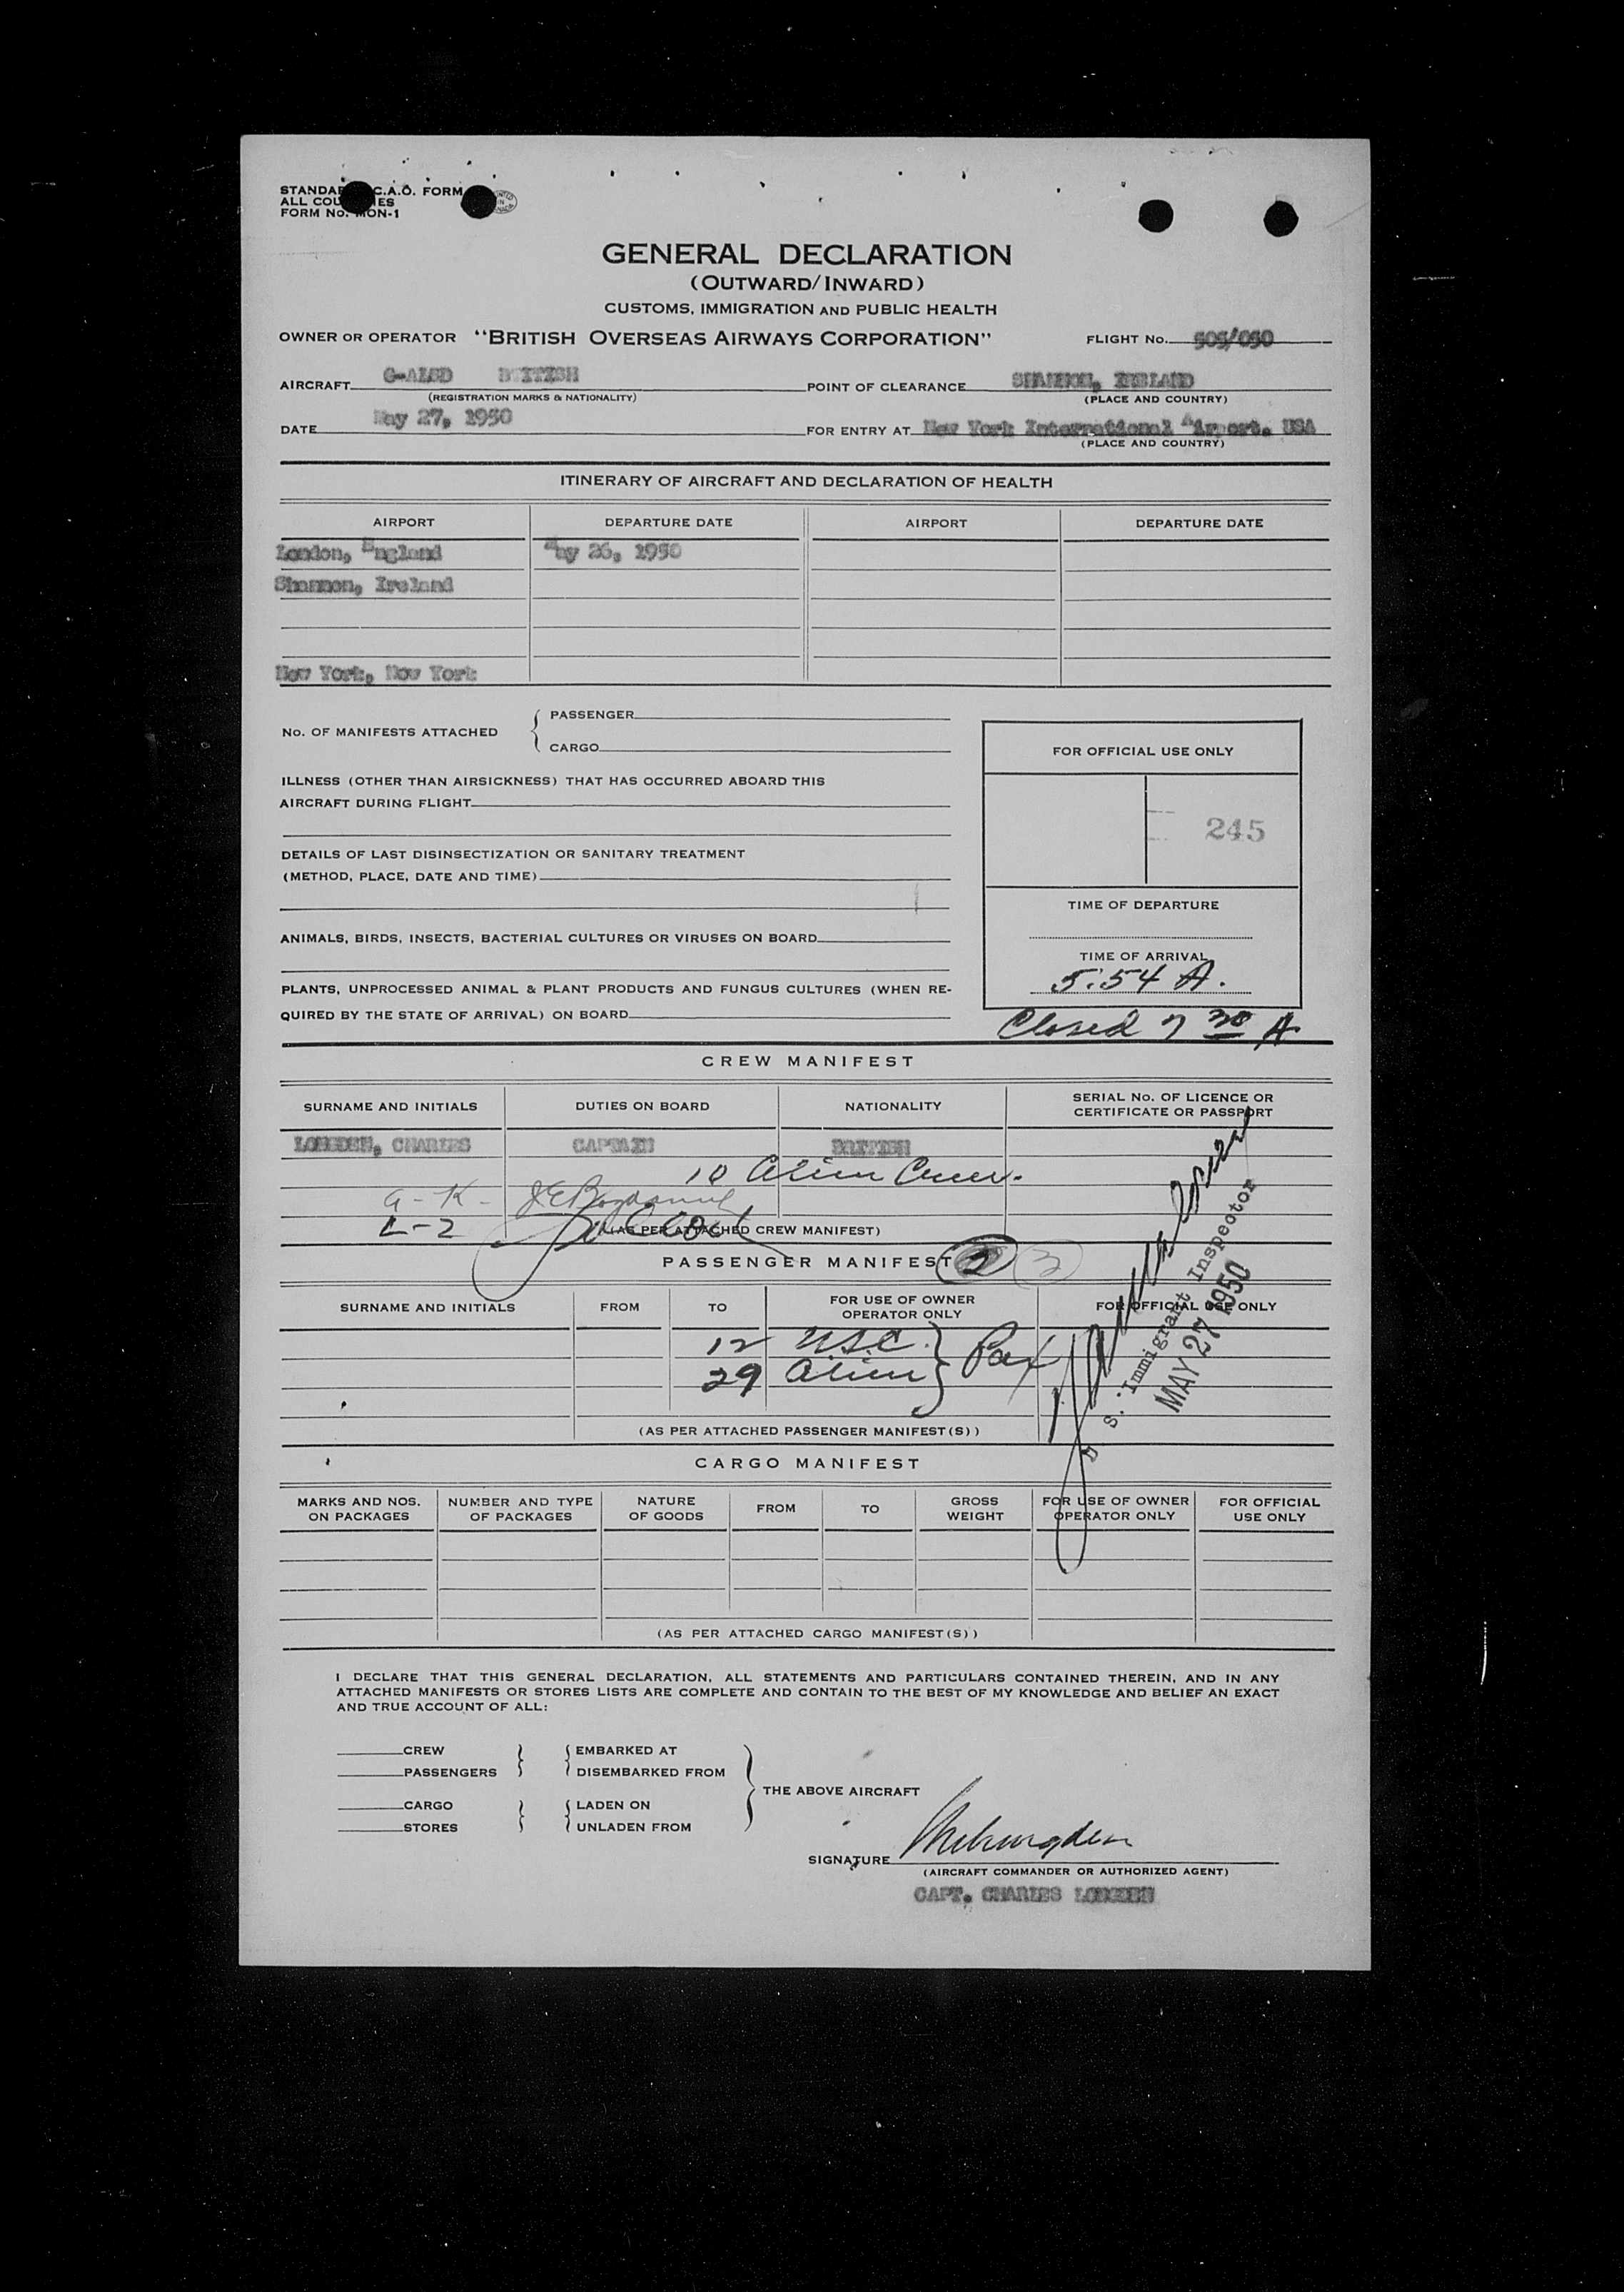 STANDARD I.C.A.O. FORM
ALL COUNTRIES
FORM No. MON-1
GENERAL DECLARATION
(OUTWARD/INWARD)
CUSTOMS, IMMIGRATION AND PUBLIC HEALTH
OWNER OR OPERATOR "BRITISH OVERSEAS AIRWAYS CORPORATION" FLIGHT No. 505/050
AIRCRAFT G-ALSD BRITISH POINT OF CLEARANCE SHANNON, IRELAND
(REGISTRATION MARKS & NATIONALITY) (PLACE AND COUNTRY)
DATE May 27, 1950 FOR ENTRY AT New York International Airport. USA
(PLACE AND COUNTRY)
ITINERARY OF AIRCRAFT AND DECLARATION OF HEALTH
AIRPORT DEPARTURE DATE AIRPORT DEPARTURE DATE
London, England May 26, 1950
Shannon, Ireland
New York, New York
No. OF MANIFESTS ATTACHED { PASSENGER
CARGO
FOR OFFICIAL USE ONLY
ILLNESS (OTHER THAN AIRSICKNESS) THAT HAS OCCURRED ABOARD THIS
AIRCRAFT DURING FLIGHT
245
DETAILS OF LAST DISINSECTIZATION OR SANITARY TREATMENT
(METHOD, PLACE, DATE AND TIME)
TIME OF DEPARTURE
ANIMALS, BIRDS, INSECTS, BACTERIAL CULTURES OR VIRUSES ON BOARD
TIME OF ARRIVAL
5:54 A.
PLANTS, UNPROCESSED ANIMAL & PLANT PRODUCTS AND FUNGUS CULTURES (WHEN RE-
QUIRED BY THE STATE OF ARRIVAL) ON BOARD
Closed 7 30 A.
CREW MANIFEST
SURNAME AND INITIALS DUTIES ON BOARD NATIONALITY SERIAL No. OF LICENCE OR
CERTIFICATE OR PASSPORT
LONGDEN, CHARLES CAPTAIN BRITISH
10 Alien Crew.
G-K-
L-2
(AS PER ATTACHED CREW MANIFEST)
PASSENGER MANIFEST 2 3
SURNAME AND INITIALS FROM TO FOR USE OF OWNER
OPERATOR ONLY FOR OFFICIAL USE ONLY
12 USC. } Pax
29 Alien
U. S. Immigrant Inspector
MAY 27 1950
(AS PER ATTACHED PASSENGER MANIFEST(S))
CARGO MANIFEST
MARKS AND NOS.
ON PACKAGES NUMBER AND TYPE
OF PACKAGES NATURE
OF GOODS FROM TO GROSS
WEIGHT FOR USE OF OWNER
OPERATOR ONLY FOR OFFICIAL
USE ONLY
(AS PER ATTACHED CARGO MANIFEST(S))
I DECLARE THAT THIS GENERAL DECLARATION, ALL STATEMENTS AND PARTICULARS CONTAINED THEREIN, AND IN ANY
ATTACHED MANIFESTS OR STORES LISTS ARE COMPLETE AND CONTAIN TO THE BEST OF MY KNOWLEDGE AND BELIEF AN EXACT
AND TRUE ACCOUNT OF ALL:
CREW } { EMBARKED AT
PASSENGERS DISEMBARKED FROM
THE ABOVE AIRCRAFT
CARGO } { LADEN ON
STORES UNLADEN FROM
SIGNATURE
(AIRCRAFT COMMANDER OR AUTHORIZED AGENT)
CAPT. CHARLES LONGDEN